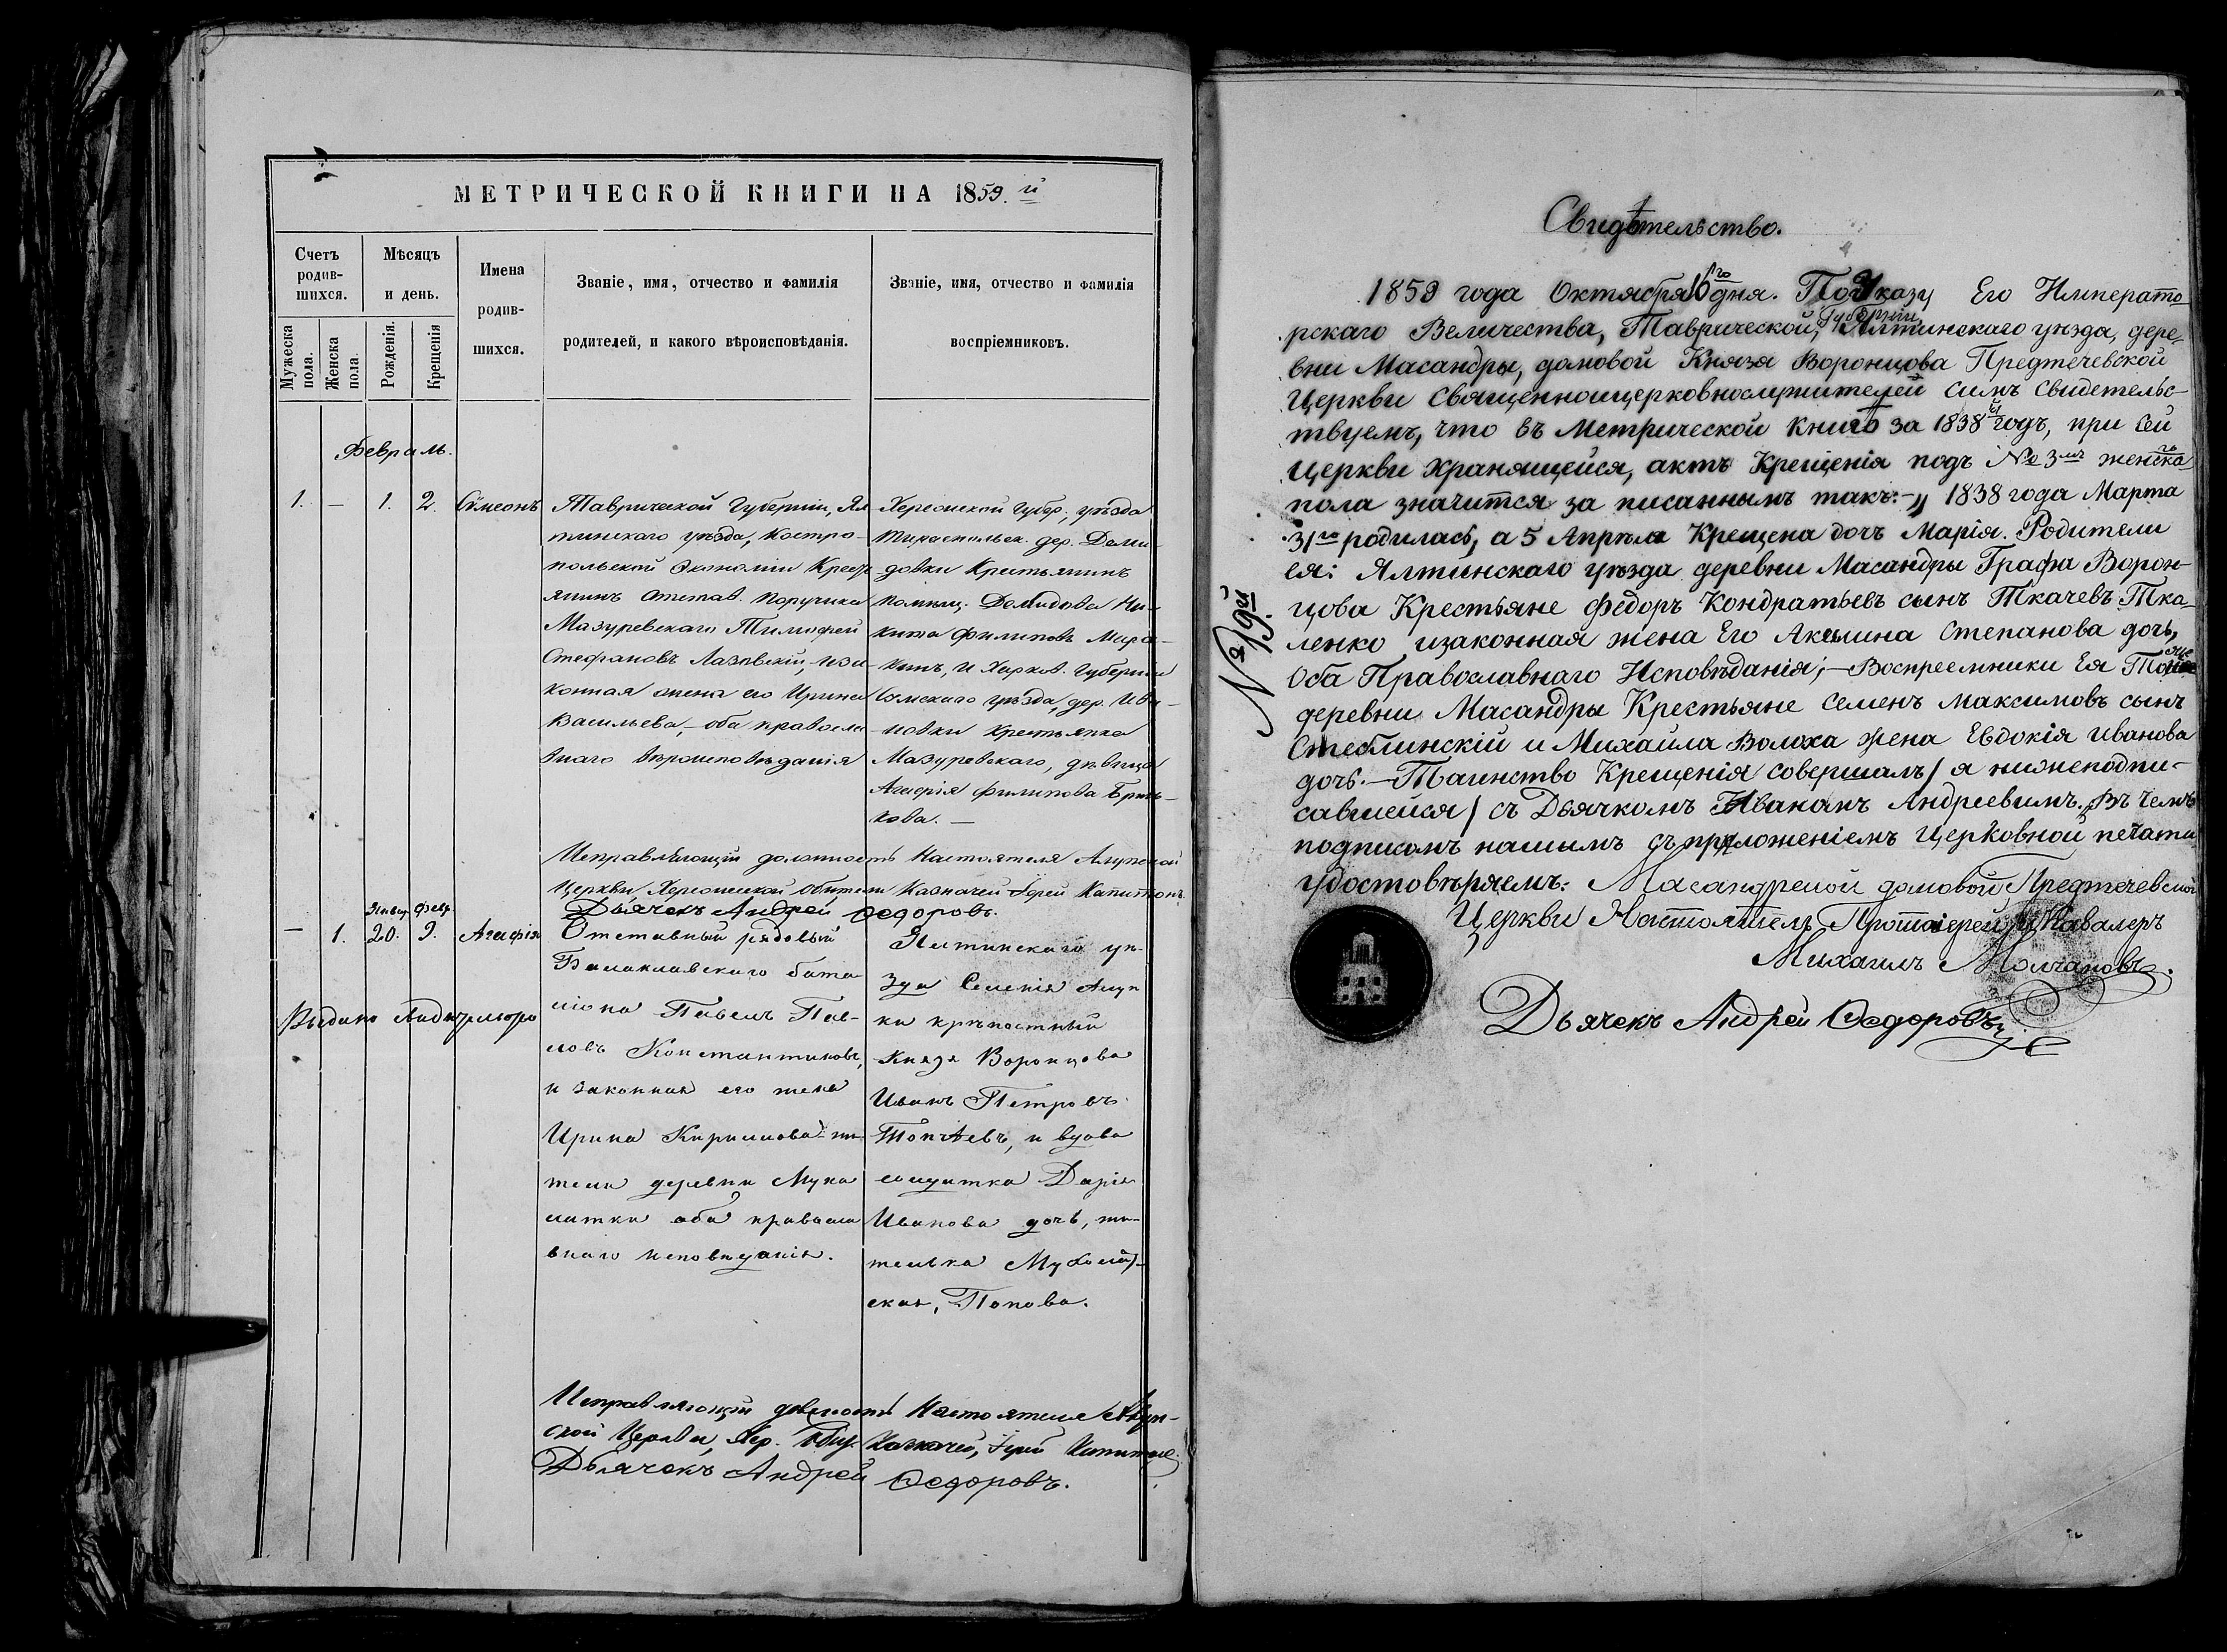 МЕТРИЧЕСКОЙ КНИГИ НА 1859.й
Счетъ
родив-
шихся.
Мѣсяцъ
и день.
Имена
родив-
шихся.
Званіе, имя, отчество и фамилія
родителей, и какого вѣроисповѣданія.
Званіе, имя, отчество и фамилія
воспріемниковъ.
Мужеска
пола.
Женска
пола.
Рожденія.
Крещенія
Февраль.
1. — 1. 2. Сѵмеонъ
Таврической Губерніи, Ял
тинскаго уѣзда, Кастро-
польской Экономіи Крест
янинъ отстав. Поручика
Мазуревскаго Тимофей
Стефановъ Лазовскій, и за
конная жена его Ирина
Васильева, – оба правосла
внаго вѣроисповѣданія
Херсонской Губер., уѣзда
Тираспольск. дер. Деми-
довки Крестьянинъ
помѣщ. Демидова Ни-
кита Филиповъ
кинъ, и Харков. Губерніи
Изюмскаго уѣзда, дер. Ива-
новки крестьянка
Мазуревскаго, дѣвица
Агафія Филипова
кова. —
Исправляющій должность Настоятеля Алупской
Церкви, Херсонеской обители Казначей Іерей Капитонъ
Дьячекъ Андрей Ѳедоровъ.
Январ Февр.
— 1. 20. 9. Агафія
Отставный рядовый
Балаклавскаго бата
ліона Павелъ Пав-
ловъ Константиновъ,
и законная его жена
Ирина Кирилова – жи
тели деревни Муха
латки оба правосла
внаго исповѣданія.
Ялтинскаго уѣ-
зда Селенія Алуп
ки крѣпостный
Князя Воронцова
Иванъ Петровъ
Топчіевъ, и вдова
солдатка Дарія
Иванова дочь, жи-
телька Мухолат-
ская, Попова.
Выдано
Исправляющій должность Настоятеля Алуп-
ской Церкви, Хер. Обит. Казначей, Іерей Капитонъ
Дьячекъ Андрей Ѳедоровъ.
Свидѣтельство.
1859 года Октября 16го дня. По Указу Его Императо-
рскаго Величества, Таврической, Губерніи, Ялтинскаго уѣзда, дере-
вни Масандры, домовой Князя Воронцова Предтечевской
Церкви Священноицерковнослужителей симъ свидетельс-
твуемъ, что въ Метрической Книгѣ за 1838й годъ, при Сей
Церкви хранящейся, актъ Крещенія подъ № 3мъ женска го
пола значится за писаннымъ такъ: – „ 1838 года Марта
31го родилась, а 5 Апрѣля Крещена дочь Марія. Родители
ея: Ялтинскаго уѣзда деревни Масандры Графа Ворон-
цова Крестьяне Федоръ Кондратьевъ сынъ Ткачевъ Тка-
ленко изаконная жена Его Акилина Степанова дочь,
Оба Православнаго Исповѣданія; – Воспреемники Ея Тойже
деревни Масандры Крестьяне Семенъ Максимовъ сынъ
Стеблинскій и Михаила Волоха жена Евдокія Иванова
дочь. – Таинство Крещенія совершалъ / я нижеподпи-
савшейся / съ Дьячкомъ Иваномъ Андреевимъ. Въ Чемъ
подписомъ нашымъ съ приложеніемъ Церковной печати
удостовѣряемъ: Масандрской домовой Предтечевской
Церкви Настоятель Протоіерей и Кавалеръ
Михаилъ Молчановъ.
Дьячекъ Андрей Ѳедоровъ
№ 19й